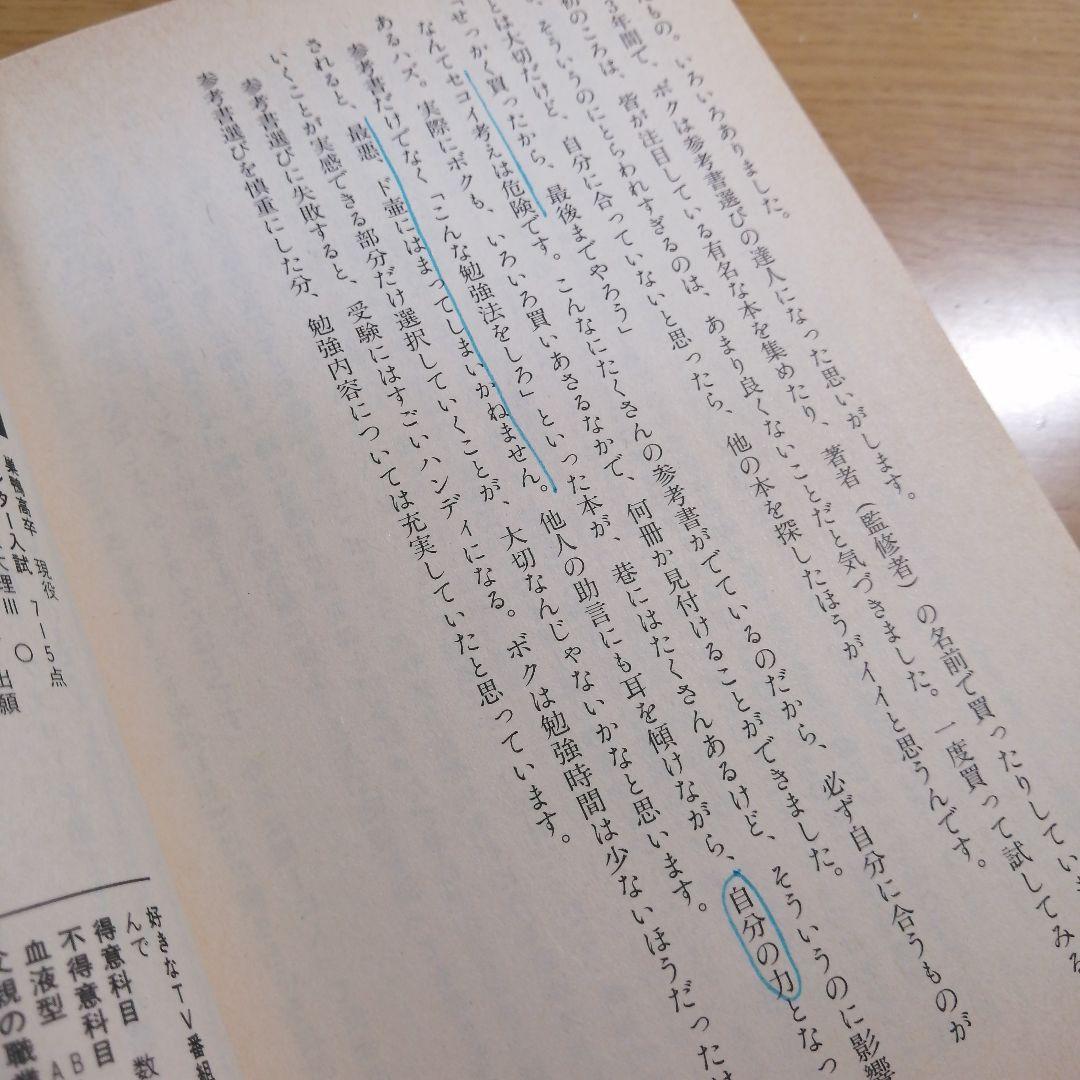 たもの。いろいろありました。
3年間で、ボクは参考書選びの達人になった思いがします。
初のころは、皆が注目している有名な本を集めたり、著者（監修者）の名前で買ったりしていま
、そういうのにとらわれすぎるのは、あまり良くないことだと気づきました。一度買って試してみる
とは大切だけど、自分に合っていないと思ったら、他の本を探したほうがイイと思うんです。
「せっかく買ったから、最後までやろう」
なんてセコイ考えは危険です。こんなにたくさんの参考書がでているのだから、必ず自分に合うものが
あるハズ。実際にボクも、いろいろ買いあさるなかで、何冊か見付けることができました。
参考書だけでなく「こんな勉強法をしろ」といった本が、巷にはたくさんあるけど、そういうのに影響
されると、最悪、ド壺にはまってしまいかねません。他人の助言にも耳を傾けながら、自分の力となっ
いくことが実感できる部分だけ選択していくことが、大切なんじゃないかなと思います。
参考書選びに失敗すると、受験にはすごいハンディになる。ボクは勉強時間は少ないほうだったけ
参考書選びを慎重にした分、勉強内容については充実していたと思っています。
巣鴨高卒 現役
ンター入試 715点
大理III 〇 出願
好きなTV番組
んで
得意科目 数
不得意科目
血液型 AB
父親の職業